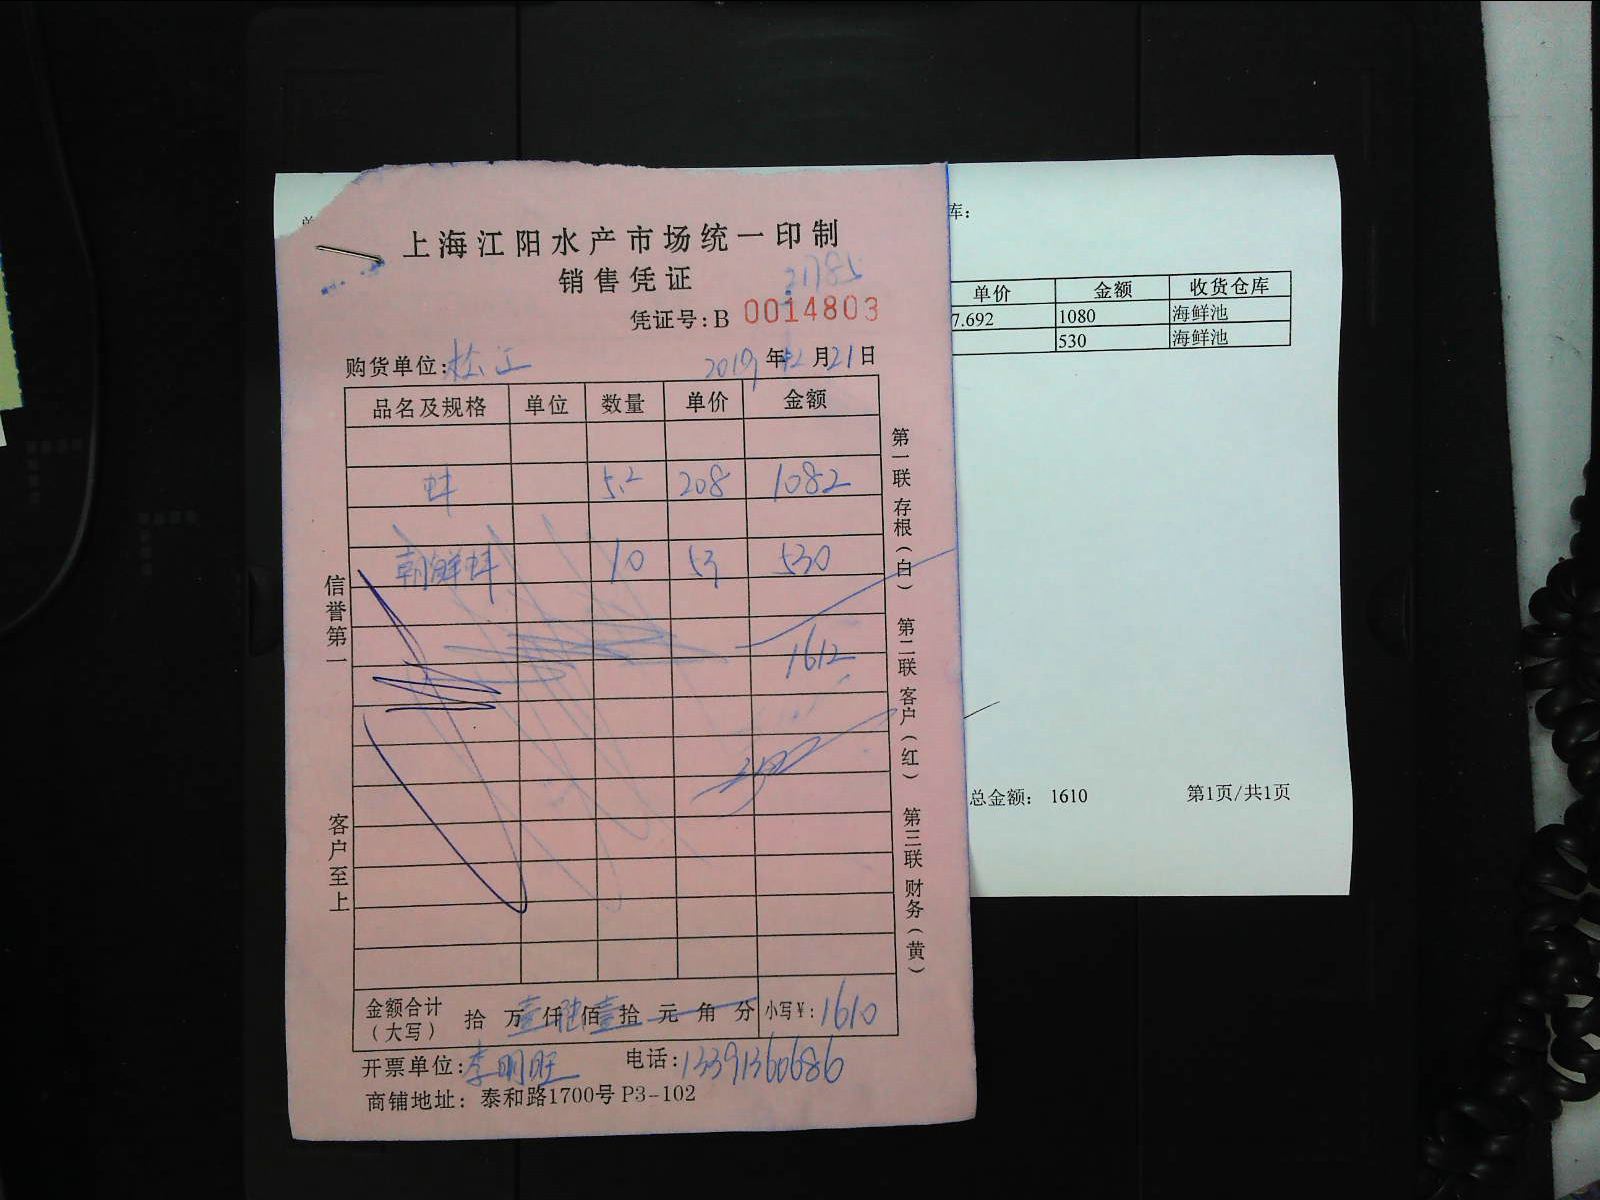 上海江阳水产市场统一印制
销售凭证
凭证号:B 0014803
购货单位:松江 2019年12月21日
品名及规格 单位 数量 单价 金额
蚌 5.2 208 1082
朝鲜蚌 10 53 530
1612
金额合计(大写) 拾 万壹仟陆佰壹拾 元 角 分 小写¥:1610
开票单位:李明旺 电话:13391360686
商铺地址: 泰和路1700号 P3-102
信誉第一
客户至上
第一联 存根(白)
第二联 客户(红)
第三联 财务(黄)
库:
单价 金额 收货仓库
7.692 1080 海鲜池
530 海鲜池
总金额: 1610 第1页/共1页